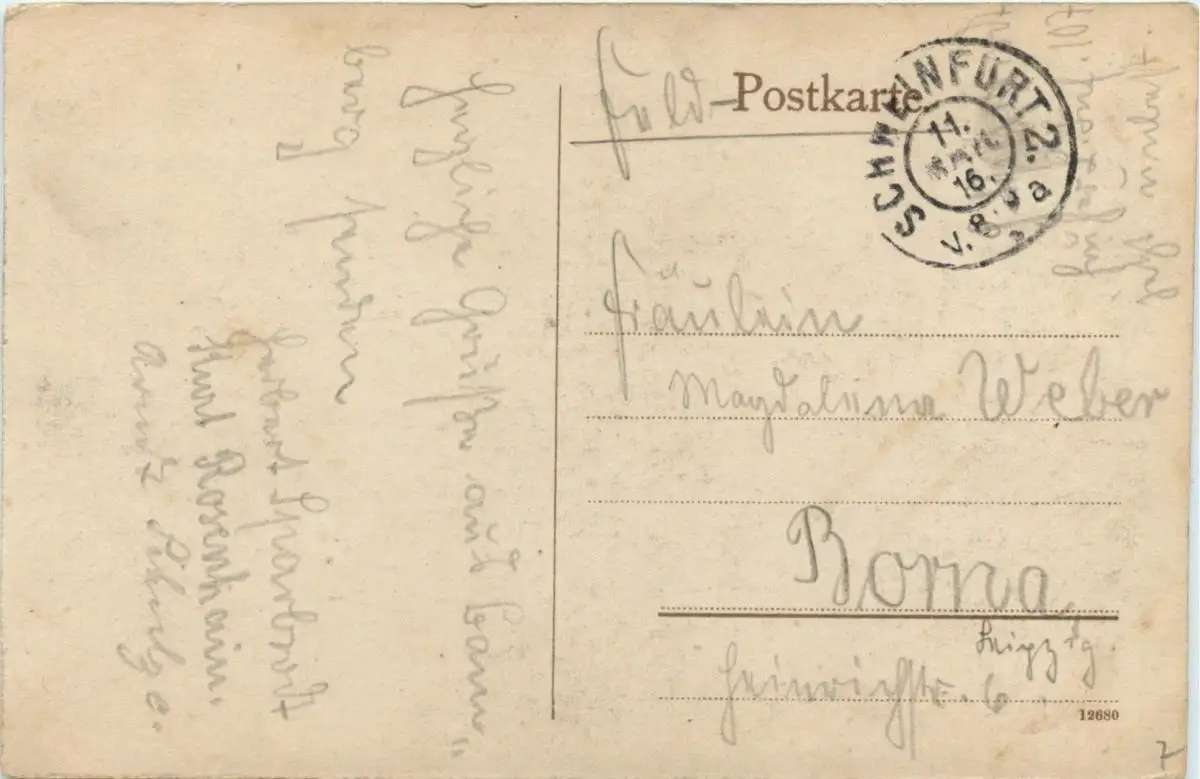 Feld-Postkarte
SCHWEINFURT 2.
11.
16.
V. 8-9 a
Fräulein
Magdalena Weber
Borna
Leipzig.
Heinrichstr. 6
12680
7
Herzliche Grüße aus Bam„
berg senden
Herbert Sparbrodt
Kurt Rosenhain.
Arndt Schulze.